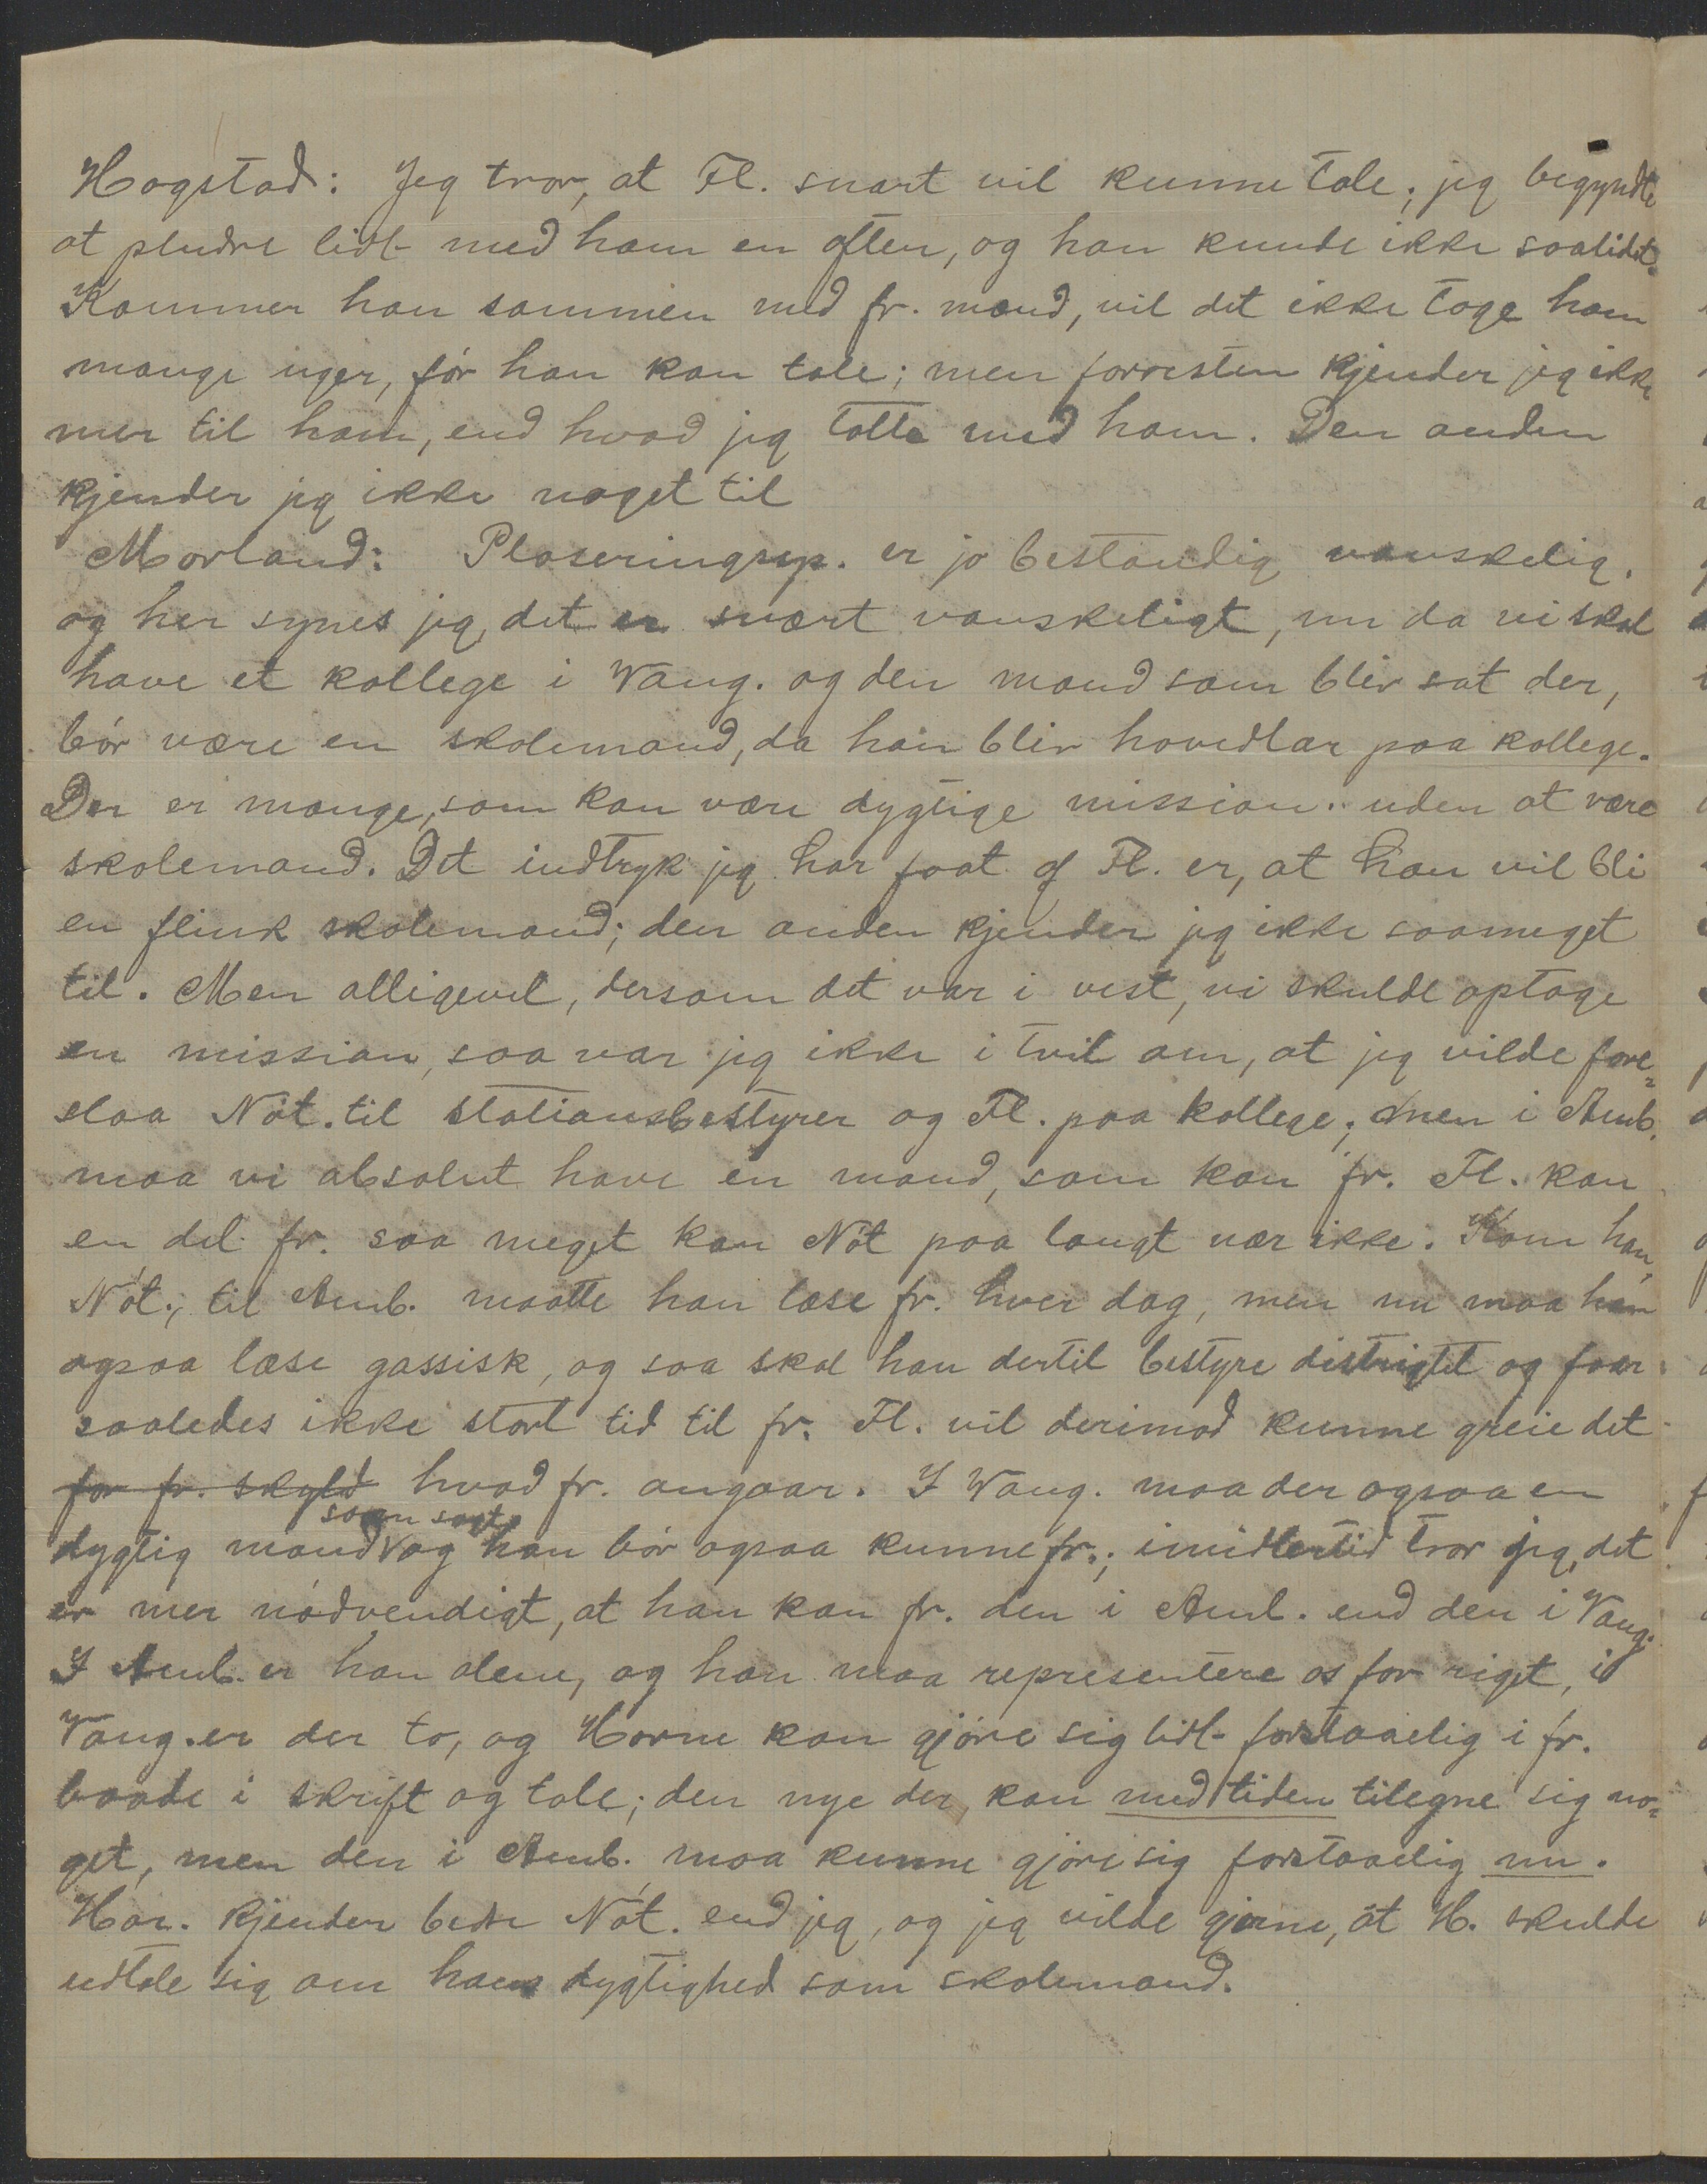 Hogstad: Jeg tror, at Fl. snart vil kunne tale; jeg begyndte
at pludre lidt med ham en aften, og han kunde ikke saalidet.
Kommer han sammen med fr. mænd, vil det ikke tage ham
mange uger, før han kan tale; men forresten kjender jeg ikke
mer til ham, end hvad jeg talte med ham. Den anden
kjender jeg ikke noget til
Morland: Plaseringssp. er jo bestandig vanskelig.
og her synes jeg, det er svært vanskeligt, nu da vi skal
have et kollege i Vang. og den mand som blir sat der,
bør være en skolemand, da han blir hovedlær paa kollege.
Der er mange, som kan være dygtige mission. uden at være
skolemænd. Det indtryk jeg har faat af Fl. er, at han vil bli
en flink skolemand; den anden kjender jeg ikke saameget
til. Men alligevel, dersom det var i vest, vi skulde optage
en mission, saa var jeg ikke i tvil om, at jeg vilde fore=
slaa Nöt. til stationsbestyrer og Fl. paa kollege; men i Amb.
maa vi absolut have en mand, som kan fr. Fl. kan
en del fr. saa meget kan Nöt paa langt nær ikke. Kom han,
Nöt., til Amb. maatte han læse fr. hver dag, men nu maa han
ogsaa læse gassisk, og saa skal han dertil bestyre distriktet og faar
saaledes ikke stort tid til fr. Fl. vil derimod kunne greie det
for fr. skyld hvad fr. angaar. I Vang. maa der ogsaa en
som sagt
dygtig mand og han bør ogsaa kunne fr.; imidlertid tror jeg, det
er mer nödvendigt, at han kan fr. den i Amb. end den i Vang.
I Amb. er han alene, og han maa representere os for riget, i
Vang. er der to, og Horne kan gjöre sig lidt forstaaelig i fr.
baade i skrift og tale; den nye der, kan med tiden tilegne sig no=
get, men den i Amb. maa kunne gjöre sig forstaaelig nu.
Hor. kjender bedre Nöt. end jeg, og jeg vilde gjerne, at H. skulde
udtale sig om hans dygtighed som skolemand.